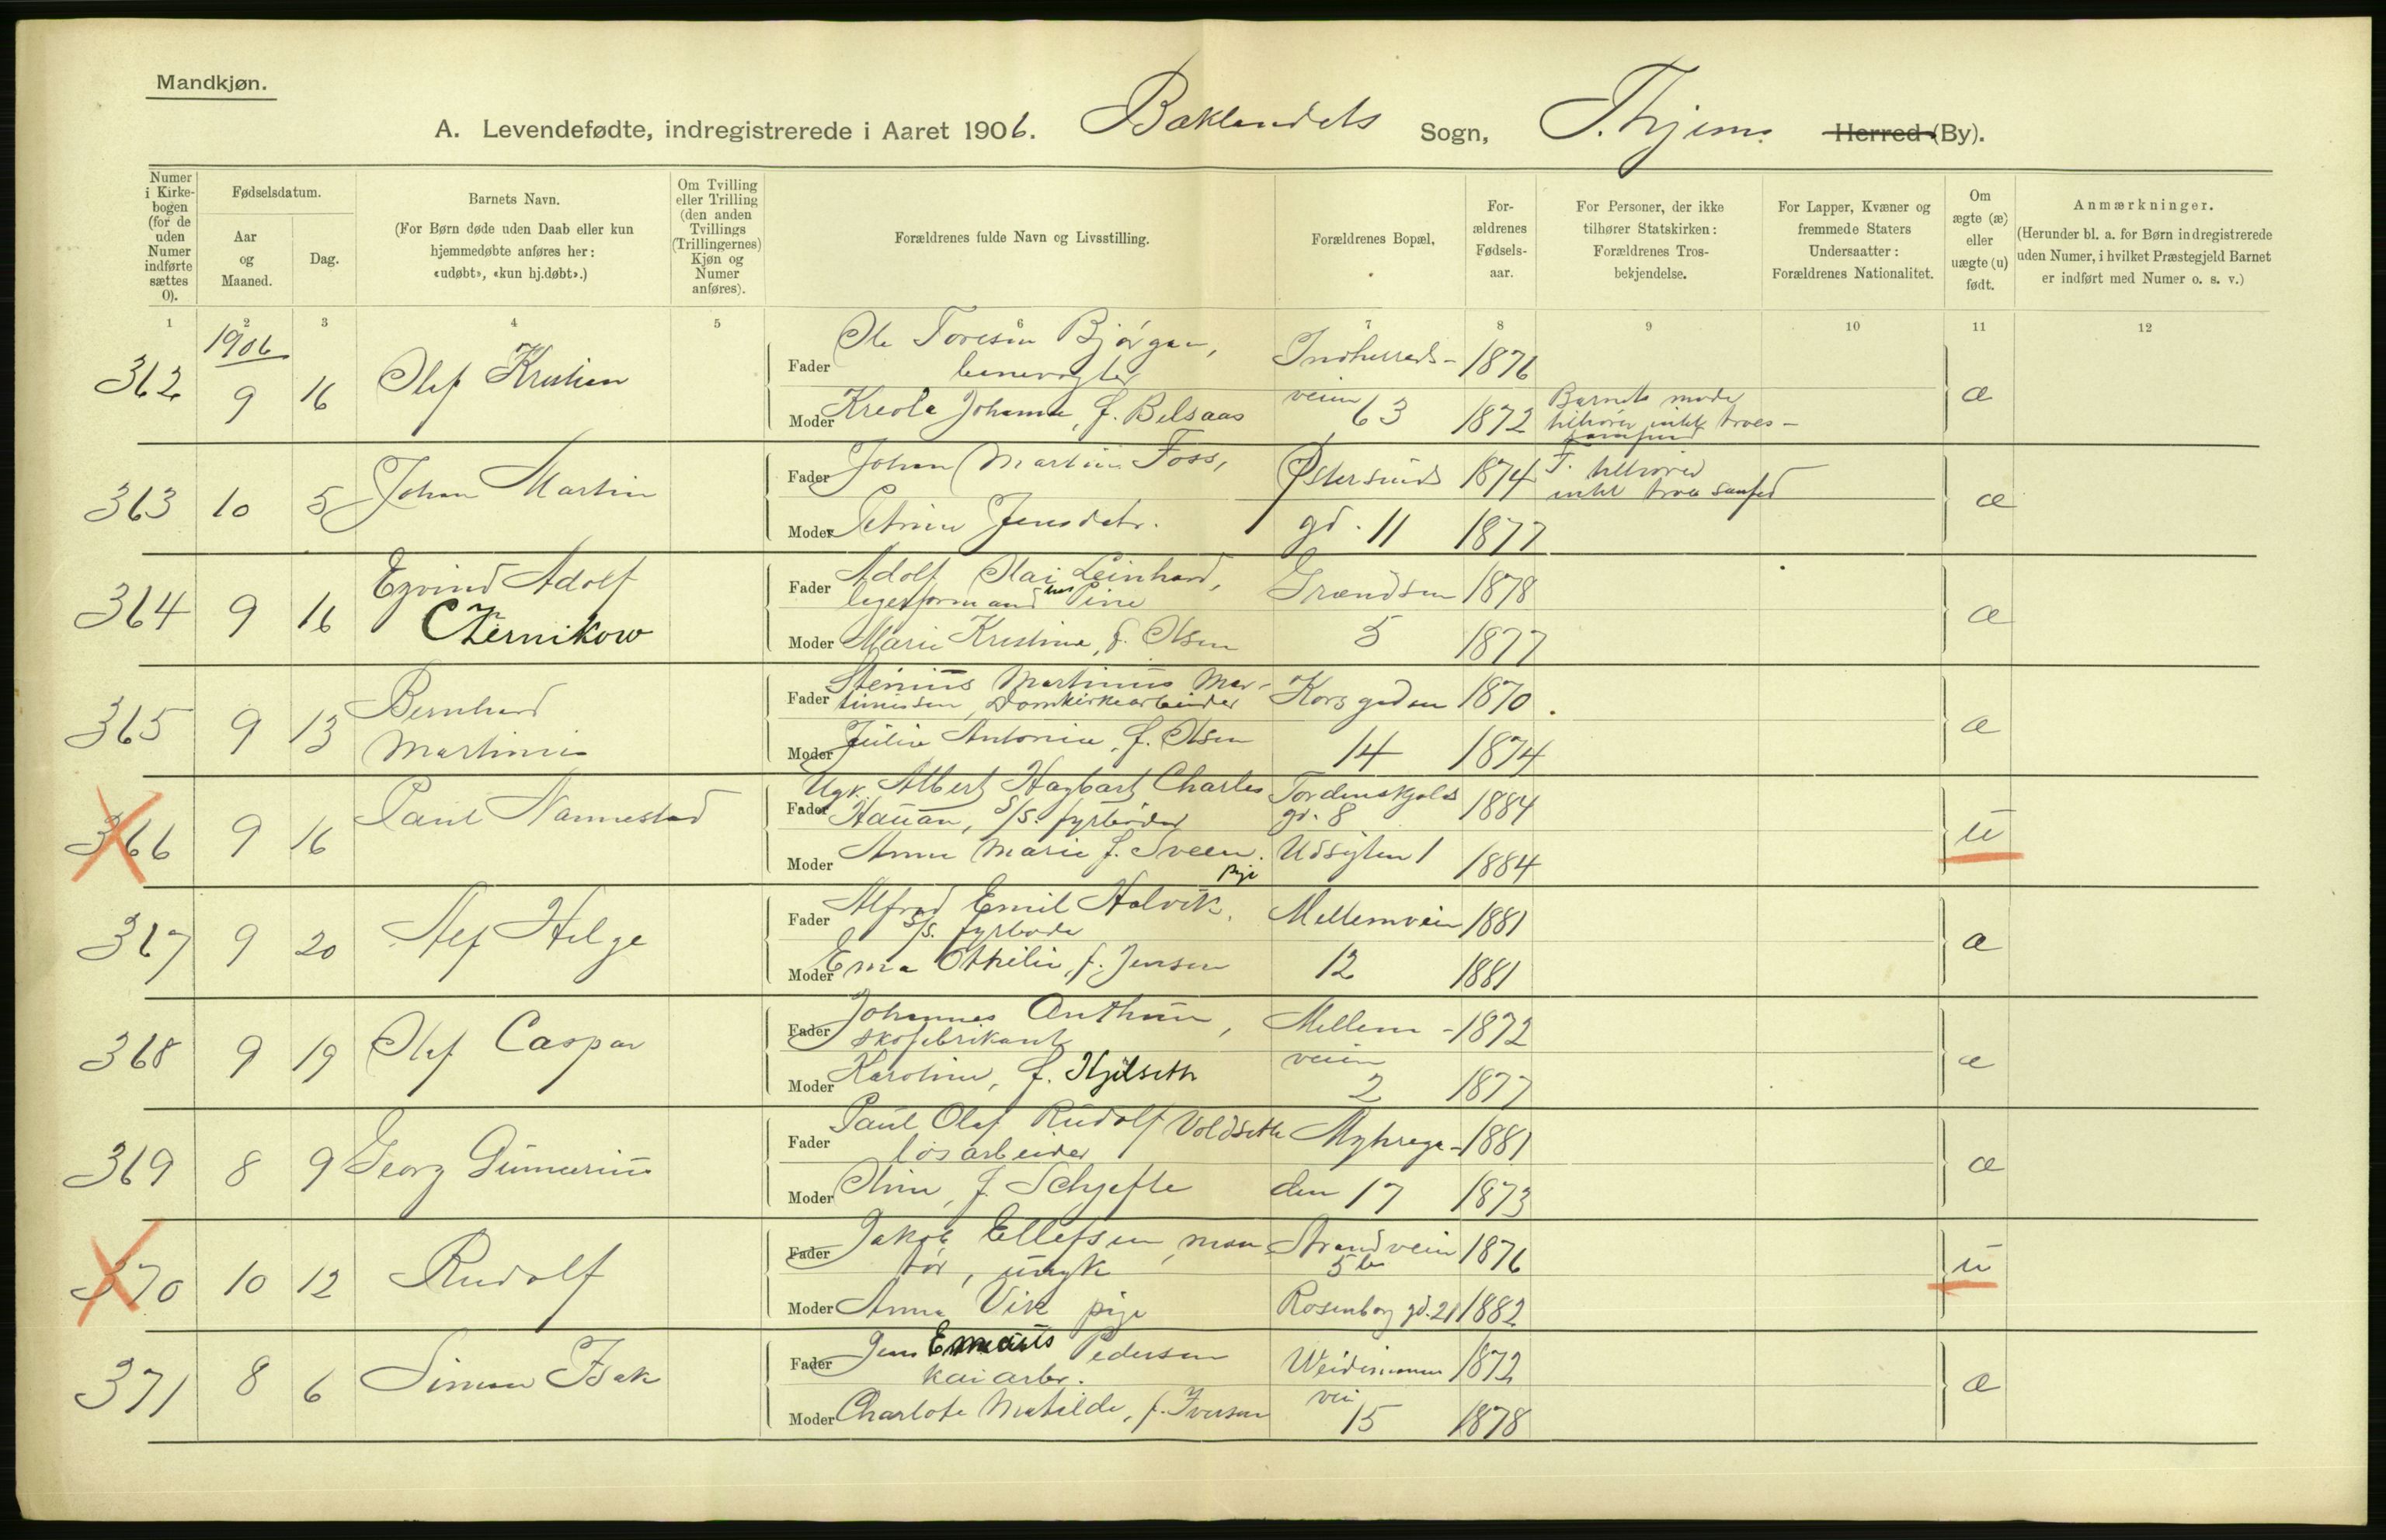 Mandkjøn.
A. Levendefødte, indregistrerede i Aaret 1906. Baklandets Sogn, T.hjems Herred (By).
Numer i Kirkebogen (for de uden Numer indførte sættes 0).
Fødselsdatum.
Aar og Maaned.
Dag.
Barnets Navn.
(For Børn døde uden Daab eller kun hjemmedøbte anføres her: «udøbt», «kun hj.døbt».)
Om Tvilling eller Trilling (den anden Tvillings (Trillingernes) Kjøn og Numer anføres).
Forældrenes fulde Navn og Livsstilling.
Forældrenes Bopæl.
Forældrenes Fødselsaar.
For Personer, der ikke tilhører Statskirken: Forældrenes Trosbekjendelse.
For Lapper, Kvæner og fremmede Staters Undersaatter: Forældrenes Nationalitet.
Om ægte (æ) eller uægte (u) født.
Anmærkninger.
(Herunder bl. a. for Børn indregistrerede uden Numer, i hvilket Præstegjeld Barnet er indført med Numer o. s. v.)
1 2 3 4 5 6 7 8 9 10 11 12
1906
362 9 16 Olaf Kristian
Fader Ole Toresen Bjørgan, Indherreds- 1876
banevogter veien
Moder Kreola Johanna, f. Belsaas 63 1872
Barnets moder
tilhører intet troes-
samfund
æ
363 10 5 Johan Martin
Fader Johan Martin Foss, Østersunds 1874
F. tilhører
intet troessamfund
Moder Petrine Jensdatr. gd. 11 1877
æ
364 9 16 Eyvind Adolf
Czernikow
Fader Adolf Olai Leinhard, Grændsen 1878
Moder Marie Kristine, f. Olsen 5 1877
æ
365 9 13 Bernhard
Martinius
Fader Stenius Martinius Mar-
tinussen, Domkirkearbeider Korsgaden 1870
Moder Julie Antonie, f. Olsen 14 1874
æ
366 9 16 Paul Nannestad
Fader Ugk. Albert Hagbart Charles Tordenskjolds 1884
Hauan, S/S. fyrbøder gd. 8
Moder Anna Marie f. Sveen. Udsigten 1 1884
pige
u
367 9 20 Alf Helge
Fader Alfred Emil Halvik, Mellemveien 1881
S/S. fyrbøder
Moder Ema Othelie, f. Jensen 12 1881
æ
368 9 19 Olaf Caspar
Fader Johannes Anthun, Mellem- 1872
skofabrikant veien
Moder Karoline, f. Hjelseth 2 1877
æ
369 8 9 Georg Gunnerius
Fader Paul Olaf Rudolf Voldseth Myhrega- 1881
løsarbeider
Moder Oline, f. Schjefte den 17 1873
æ
370 10 12 Rudolf
Fader Jakob Ellefsen, mon- Strandveien 1876
tør, ungk 5 b
Moder Anna Vik pige Rosenborg gd. 21 1882
u
371 8 6 Simon Isak
Fader Jens Emaus Pedersen Weidemanns 1872
kaiarbr. vei
Moder Charlote Matilde, f. Iversen 15 1878
æ